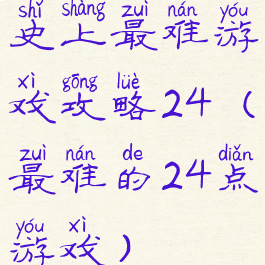 shǐ shàng zuì nán yóu
史上最难游
xì gōng lüè
戏攻略24（
zuì nán de diǎn
最难的24点
yóu xì
游戏）